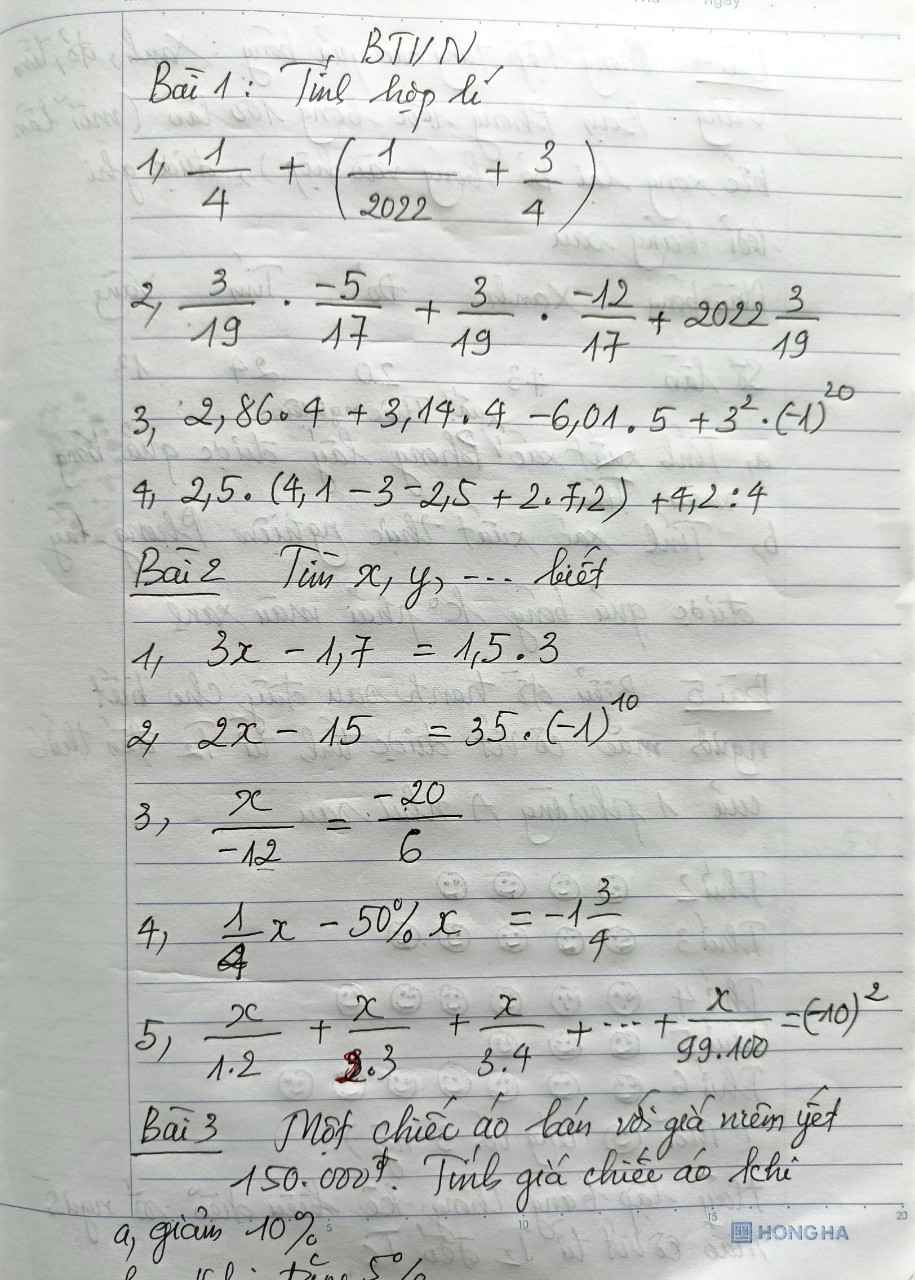 BTVN
Bài 1 : Tính hợp lí
1, 1/4 + (1/2022 + 3/4)
2, 3/19 . -5/17 + 3/19 . -12/17 + 2022 3/19
3, 2,86.4 + 3,14.4 - 6,01.5 + 3² . (-1)²⁰
4, 2,5.(4,1 - 3 - 2,5 + 2.7,2) + 4,2 : 4
Bài 2 Tìm x, y, ... biết
1, 3x - 1,7 = 1,5.3
2, 2x - 15 = 35.(-1)¹⁰
3, x/-12 = -20/6
4, 1/4 x - 50% x = -1 3/4
5, x/1.2 + x/2.3 + x/3.4 + ... + x/99.100 = (-10)²
Bài 3 Một chiếc áo bán với giá niêm yết
150.000đ. Tính giá chiếc áo khi
a, giảm 10%
5 10 15 20
HONG HA